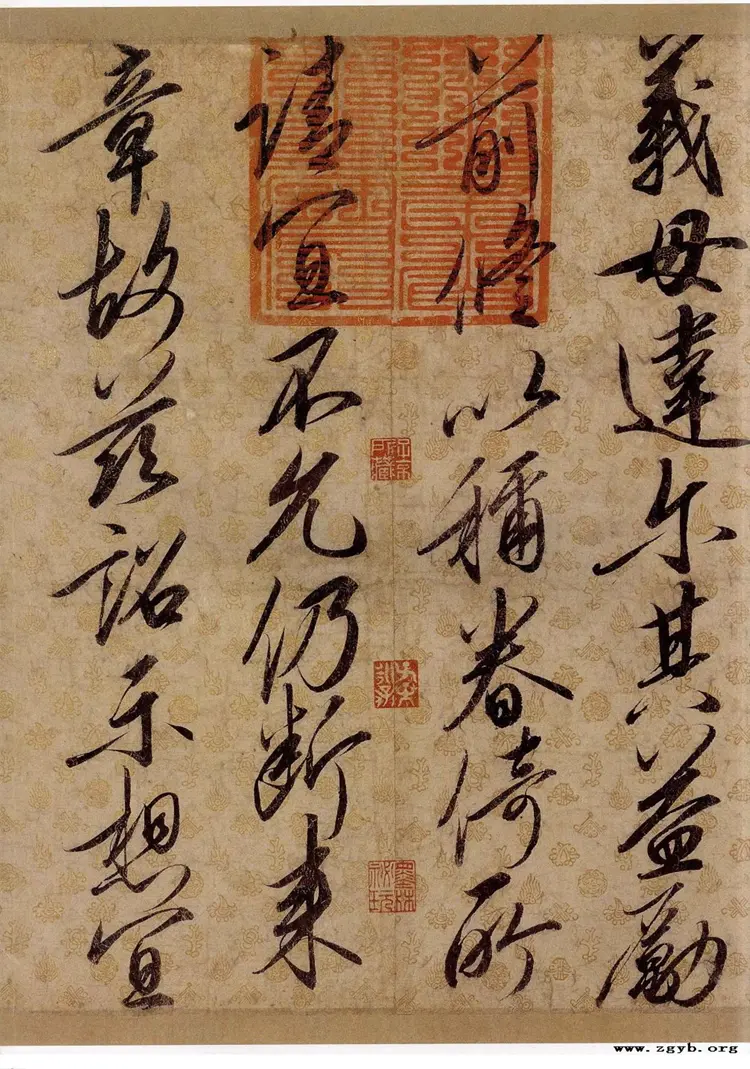 義毋違尔其益勵
前修以稱眷倚所
請宜不允仍斷來
章故茲詔示想宜
www.zgyb.org